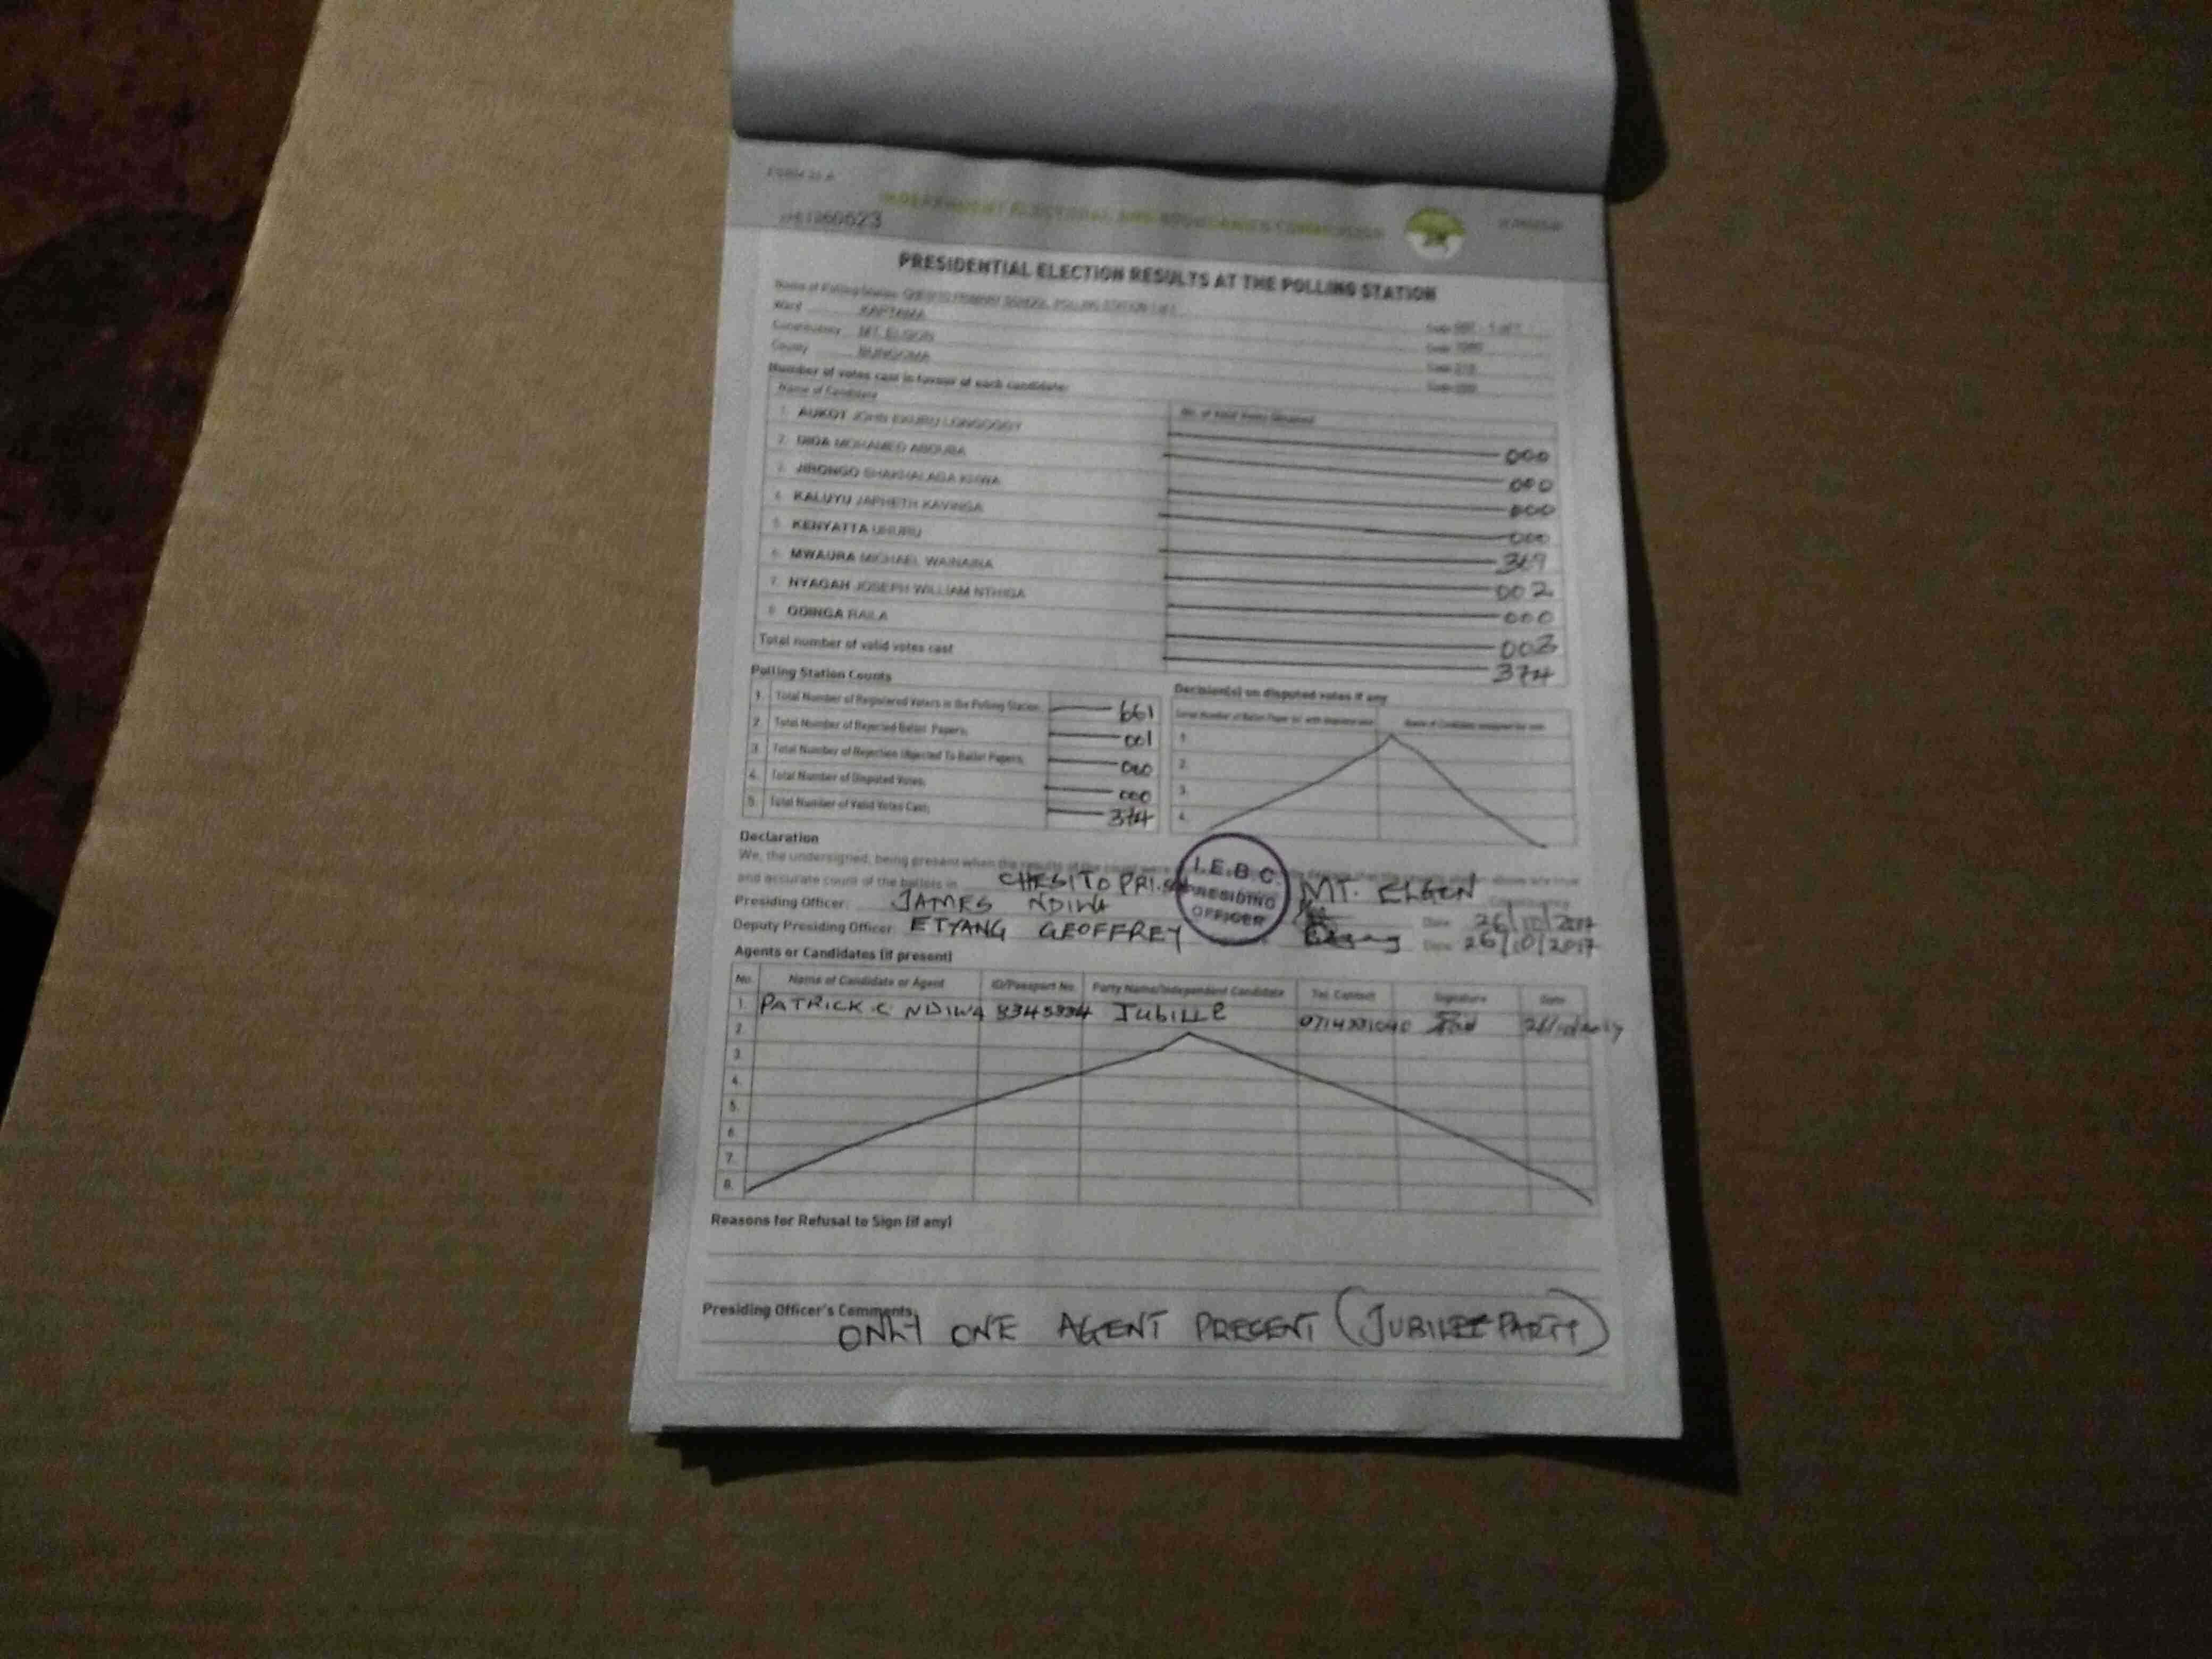 FORM 34 A
INDEPENDENT ELECTORAL AND BOUNDARIES COMMISSION
PRESIDENTIAL ELECTION RESULTS AT THE POLLING STATION
Name of Polling Station CHESITO PRIMARY SCHOOL POLLING STATION 1 of 1
Ward KAPTAMA
Constituency MT. ELGON
County BUNGOMA
Number of votes cast in favour of each candidate:
Name of Candidate No. of Valid Votes Obtained
1. AUKOT JOHN EKURU LONGOGGY 000
2. DIDA MOHAMED ABDUBA 000
3. JIRONGO SHAKHALAGA KHWA 000
4. KALUYU JAPHETH KAVINGA 000
5. KENYATTA UHURU 369
6. MWAURA MICHAEL WAINAINA 002
7. NYAGAH JOSEPH WILLIAM NTHIGA 000
8. ODINGA RAILA 003
Total number of valid votes cast 374
Polling Station Counts
1. Total Number of Registered Voters in the Polling Station; 661
2. Total Number of Rejected Ballot Papers; 001
3. Total Number of Rejection Objected To Ballot Papers; 000
4. Total Number of Disputed Votes; 000
5. Total Number of Valid Votes Cast; 374
Decision(s) on disputed votes if any
1.
2.
3.
4.
Declaration
We, the undersigned, being present when the results of the count
and accurate count of the ballots in CHESITO PRI. MT. ELGON
I.E.B.C. PRESIDING OFFICER
Presiding Officer: JAMES NDIWA Date 26/10/2017
Deputy Presiding Officer ETYANG GEOFFREY Date 26/10/2017
Agents or Candidates (if present)
No. Name of Candidate or Agent ID/Passport No. Party Name/Independent Candidate Tel. Contact Signature Date
1. PATRICK C. NDIWA Jubille
2.
3.
4.
5.
6.
7.
8.
Reasons for Refusal to Sign (if any)
Presiding Officer's Comments:
ONLY ONE AGENT PRESENT (JUBILEE PARTY)